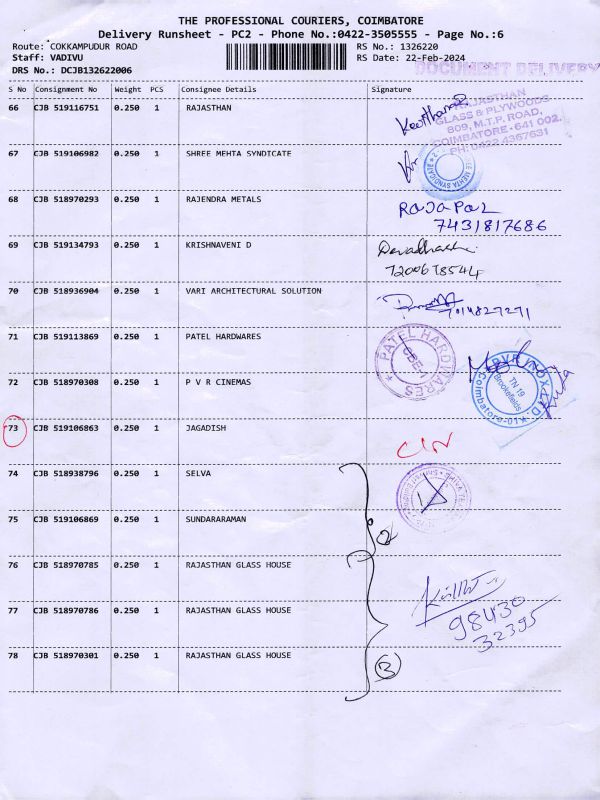 THE PROFESSIONAL COURIERS, COIMBATORE
Delivery Runsheet - PC2 - Phone No.:0422-3505555 - Page No.:6
Route: COKKAMPUDUR ROAD RS No.: 1326220
Staff: VADIVU RS Date: 22-Feb-2024
DRS No.: DCJB132622006 DOCUMENT DELIVERY
S No Consignment No Weight PCS Consignee Details Signature
66 CJB 519116751 0.250 1 RAJASTHAN
RAJASTHAN
GLASS & PLYWOODS
809, M.T.P. ROAD,
COIMBATORE - 641 002.
PH: 0422 4367631
67 CJB 519106982 0.250 1 SHREE MEHTA SYNDICATE
MEHTA SYNDICATE
68 CJB 518970293 0.250 1 RAJENDRA METALS
RAJAPAL
7431817686
69 CJB 519134793 0.250 1 KRISHNAVENI D
7200678544
70 CJB 518936904 0.250 1 VARI ARCHITECTURAL SOLUTION
7014827271
71 CJB 519113869 0.250 1 PATEL HARDWARES
PATEL HARDWARES
CBE-1
72 CJB 518970308 0.250 1 P V R CINEMAS
PVR INOX LTD.
TN 19
Brookefields
Coimbatore-01
73 CJB 519106863 0.250 1 JAGADISH
74 CJB 518938796 0.250 1 SELVA
75 CJB 519106869 0.250 1 SUNDARARAMAN
2
76 CJB 518970785 0.250 1 RAJASTHAN GLASS HOUSE
77 CJB 518970786 0.250 1 RAJASTHAN GLASS HOUSE
98430
32395
78 CJB 518970301 0.250 1 RAJASTHAN GLASS HOUSE
3